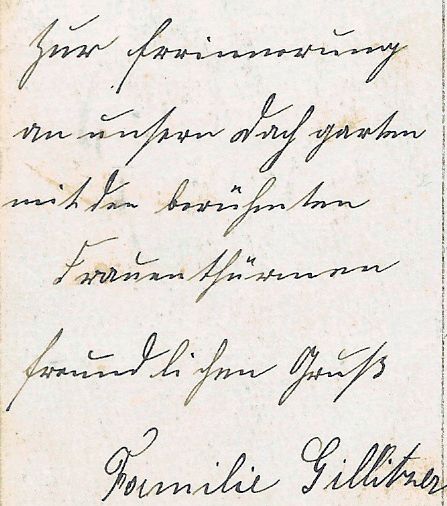 Zur Errinnerung
an unsern Dachgarten
mit den berühmten
Frauenthürmen
freundlichen Gruß
Familie Gillitzer